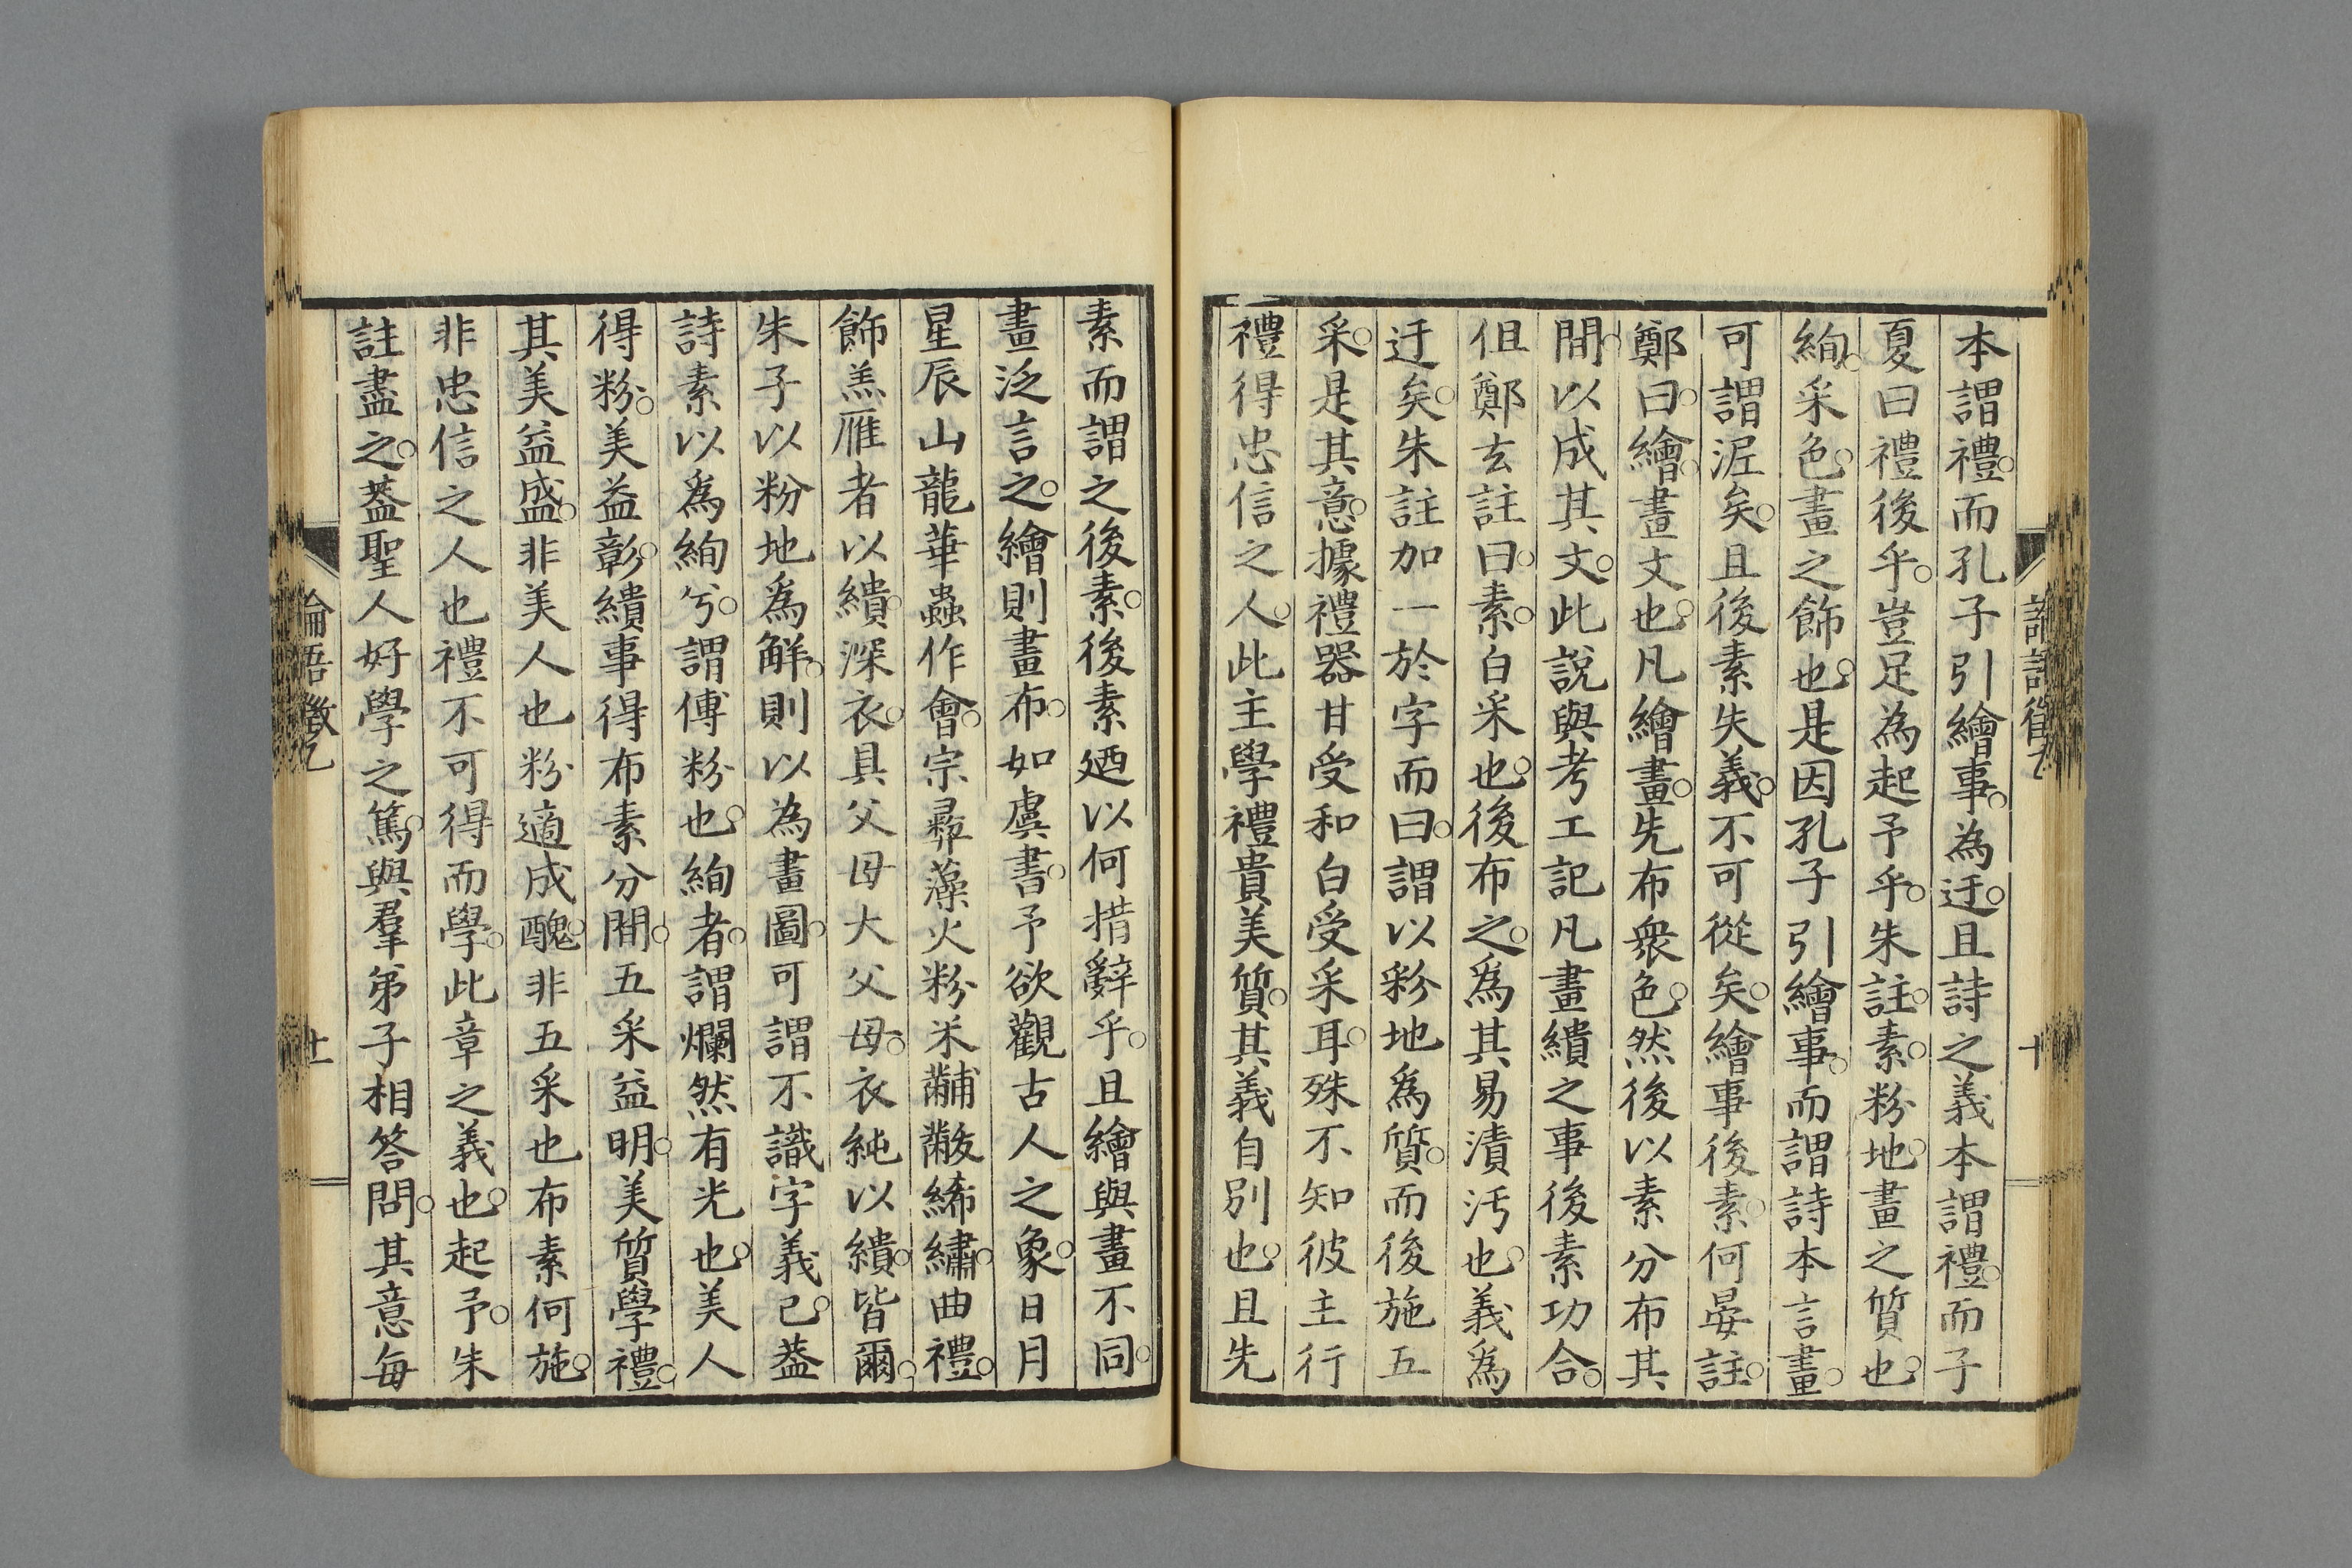 本謂禮。而孔子引繪事。為迂。且詩之義本謂禮。而子
夏曰禮後乎。豈足為起予乎。朱註。素。粉地。畫之質也。
絢。采色。畫之飾也。是因孔子引繪事。而謂詩本言畫。
可謂泥矣。且後素失義。不可從矣。繪事後素。何晏註。
鄭曰。繪。畫文也。凡繪畫。先布衆色。然後以素分布其
間。以成其文。此說與考工記凡畫繢之事後素功合。
但鄭玄註曰。素。白采也。後布之。爲其易漬汚也。義爲
迂矣。朱註加一於字而曰。謂以粉地爲質。而後施五
采。是其意。據禮器甘受和白受采耳。殊不知彼主行
禮得忠信之人。此主學禮貴美質。其義自別也。且先
素而謂之後素。後素廼以何措辭乎。且繪與畫不同。
畫泛言之。繪則畫布。如虞書。予欲觀古人之象。日月
星辰山龍華蟲作會。宗彞藻火粉米黼黻絺繡。曲禮。
飾羔雁者以繢。深衣。具父母大父母。衣純以繢。皆爾。
朱子以粉地爲解。則以為畫圖。可謂不識字義已。蓋
詩素以爲絢兮。謂傅粉也。絢者。謂爛然有光也。美人
得粉。美益彰。繢事得布素分間。五采益明。美質學禮。
其美益盛。非美人也粉適成醜。非五采也布素何施。
非忠信之人也禮不可得而學。此章之義也。起予。朱
註盡之。蓋聖人好學之篤。與羣弟子相答問。其意每
論語徵乙
十一
十